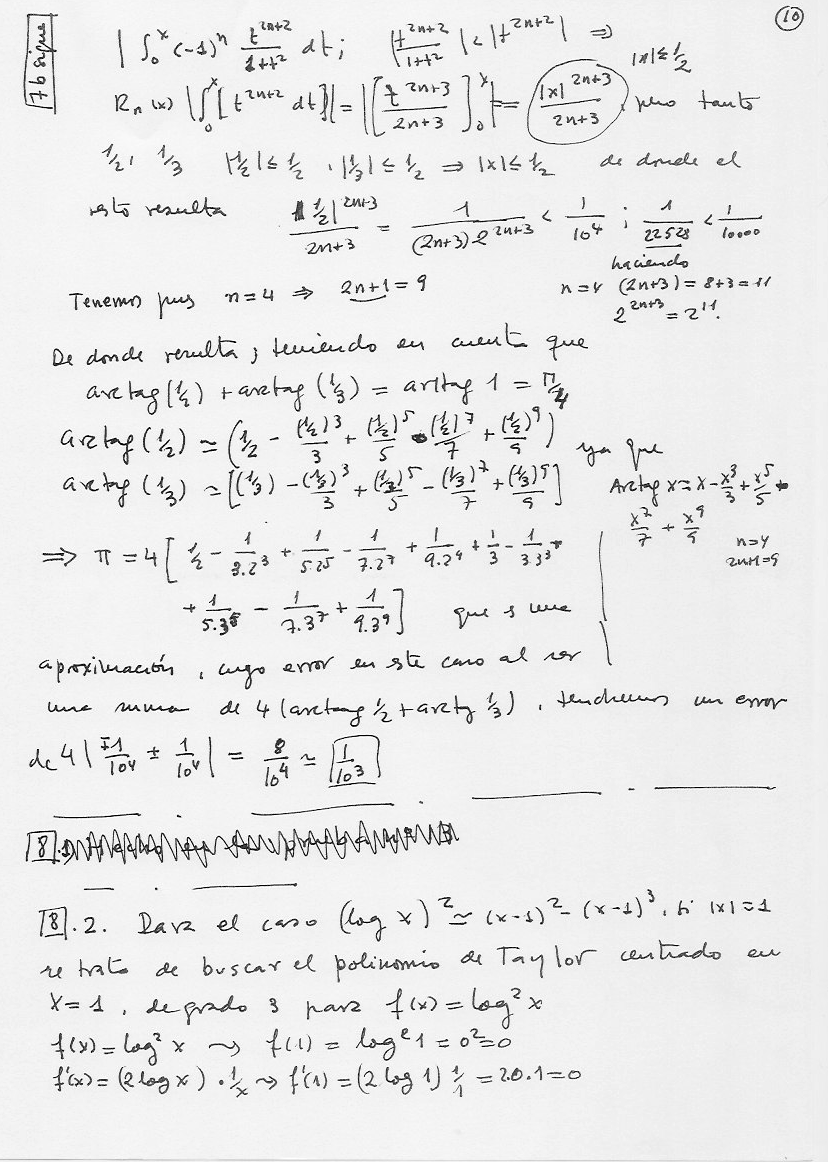 10
7b sigue
| ∫₀ˣ (-1)ⁿ t²ⁿ⁺²/(1+t²) dt ; |t²ⁿ⁺²/(1+t²)| < |t²ⁿ⁺²| ⇒
|x| ≤ 1/2
Rₙ(x) |∫₀ˣ [t²ⁿ⁺² dt]| = |[t²ⁿ⁺³/(2n+3)]₀ˣ| = |x|²ⁿ⁺³/(2n+3), pero tanto
1/2, 1/3 |1/2| ≤ 1/2, |1/3| ≤ 1/2 ⇒ |x| ≤ 1/2 de donde el
resto resulta |1/2|²ⁿ⁺³/(2n+3) = 1/((2n+3)2²ⁿ⁺³) < 1/10⁴ ; 1/22528 < 1/10000
haciendo
Tenemos pues n=4 ⇒ 2n+1 = 9 n=4 (2n+3) = 8+3 = 11
2²ⁿ⁺³ = 2¹¹.
De donde resulta, teniendo en cuenta que
arctag(1/2) + arctag(1/3) = arctag 1 = π/4
arctag(1/2) ≃ (1/2 - (1/2)³/3 + (1/2)⁵/5 - (1/2)⁷/7 + (1/2)⁹/9) ya que
arctag(1/3) ≃ [(1/3) - (1/3)³/3 + (1/3)⁵/5 - (1/3)⁷/7 + (1/3)⁹/9] Arctag x ≃ x - x³/3 + x⁵/5 -
x⁷/7 + x⁹/9
n=4
2n+1=9
⇒ π = 4[1/2 - 1/3.2³ + 1/5.2⁵ - 1/7.2⁷ + 1/9.2⁹ + 1/3 - 1/3.3³ +
+ 1/5.3⁵ - 1/7.3⁷ + 1/9.3⁹] que es una
aproximación, cuyo error en este caso al ser
una suma de 4(arctang 1/2 + arctg 1/3), tendremos un error
de 4|∓1/10⁴ ± 1/10⁴| = 8/10⁴ ≃ 1/10³
8.1
8.2. Para el caso (log x)² ≃ (x-1)² - (x-1)³, si |x| ≃ 1
se trata de buscar el polinomio de Taylor centrado en
x = 1, de grado 3 para f(x) = log² x
f(x) = log² x ⇝ f(1) = log² 1 = 0² = 0
f'(x) = (2 log x) · 1/x ⇝ f'(1) = (2 log 1) 1/1 = 2.0.1 = 0